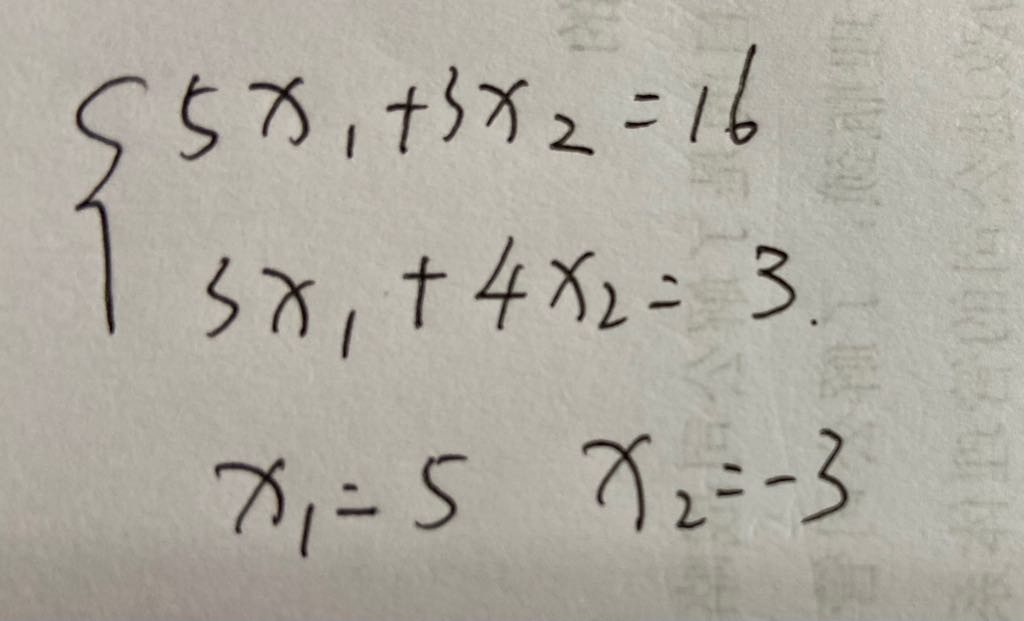 5x₁+3x₂=16
3x₁+4x₂=3.
x₁=5 x₂=-3